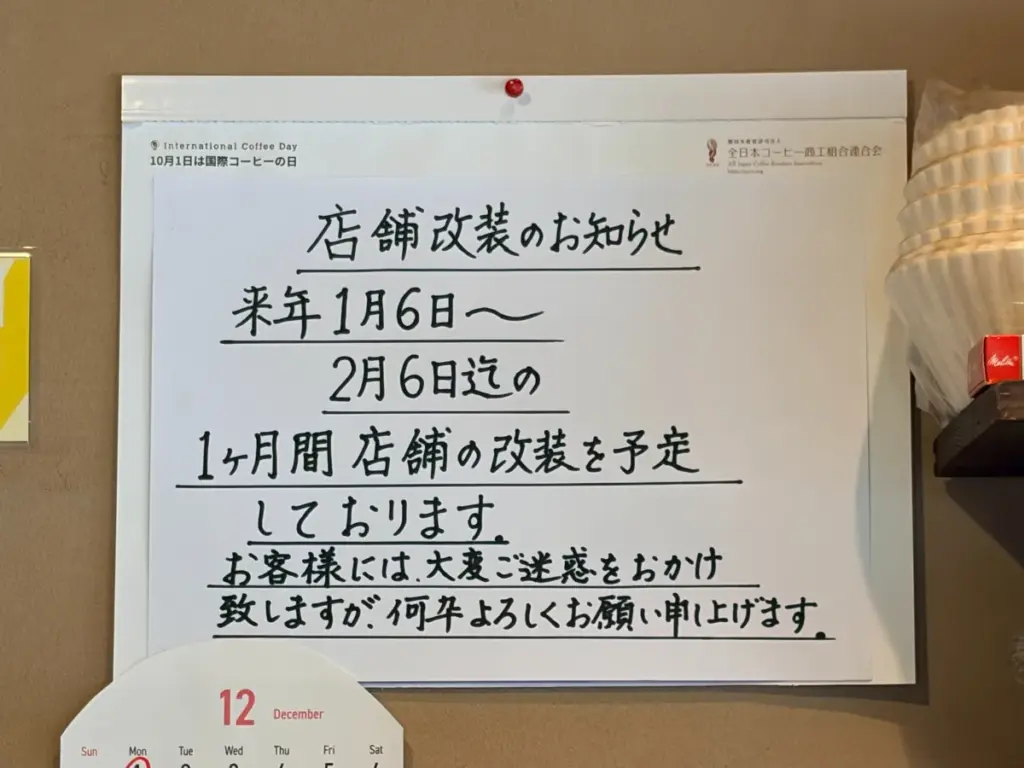 International Coffee Day
10月1日は国際コーヒーの日
全日本コーヒー商工組合連合会
店舗改装のお知らせ
来年1月6日〜
2月6日迄の
1ヶ月間 店舗の改装を予定
しております。
お客様には、大変ご迷惑をおかけ
致しますが、何卒よろしくお願い申し上げます。
Melitta
12 December
Sun Mon Tue Wed Thu Fri Sat